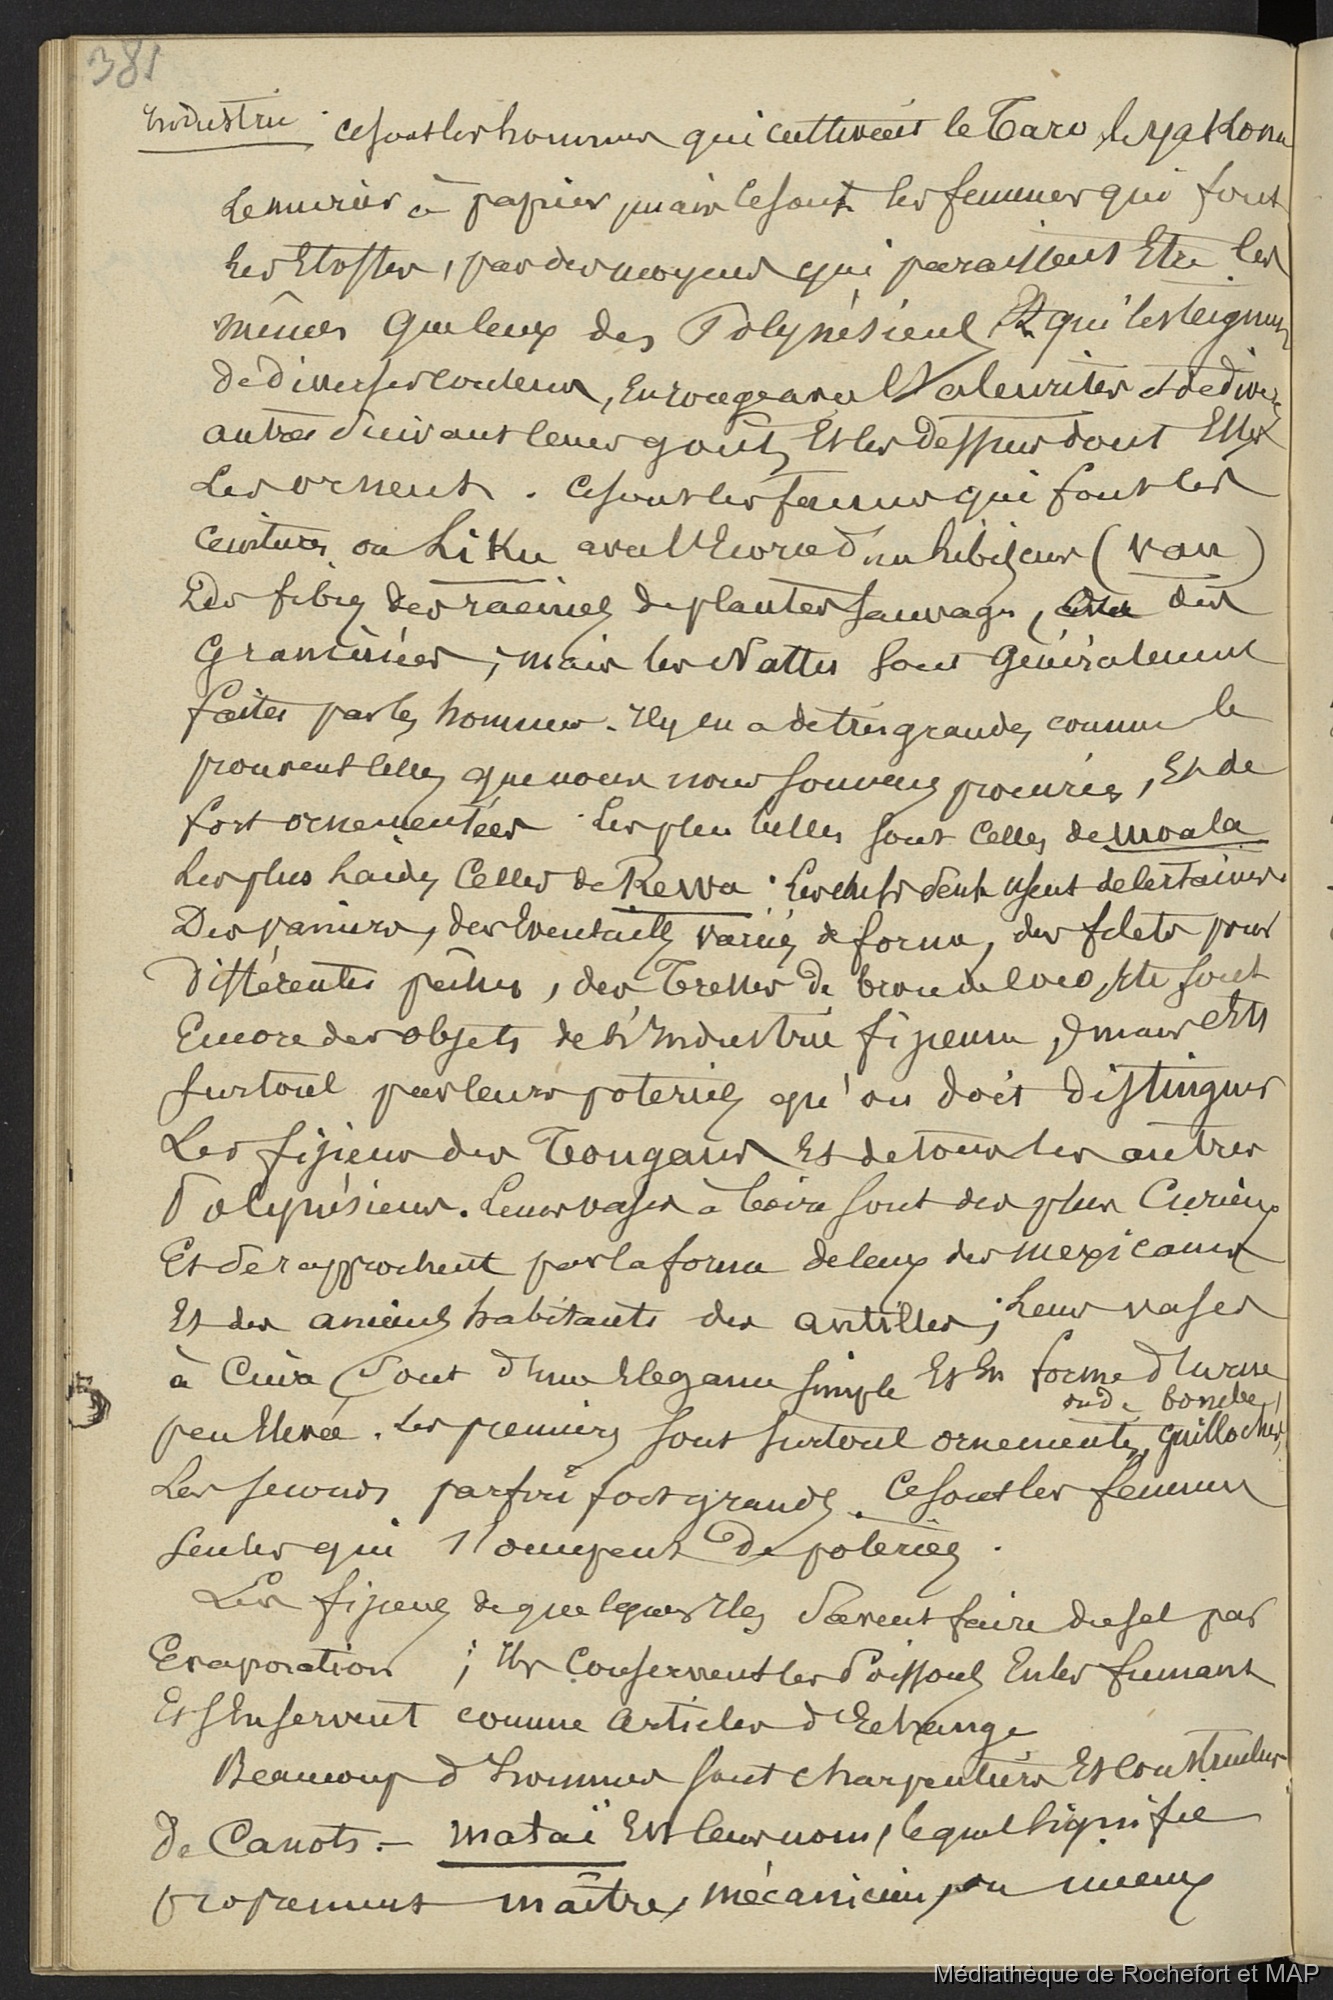 381
Industrie . Ce sont les hommes qui cultivent le Taro, le yakona
le murier à papier, mais ce sont les femmes qui font
les Etoffes, par des moyens qui paraissent Etre les
mêmes que ceux des Polynésiens & qui les teignent
de diverses couleurs, En rouge avec l'aleurites et de divers
autres suivant leurs goûts, Et les dessins dont Elles
les ornent. Ce sont les femmes qui font les
ceintures ou Liku avec l'Ecorce d'un hibiscus (vau)
Des fibres des racines de plantes sauvages, des
graminées ; mais les Nattes sont généralement
faites par les hommes. Il y en a de très grandes comme le
prouvent celles que nous nous sommes procurées, Et de
fort ornementées. Les plus belles sont celles de Moala
les plus laides celles de Rewa. Les chefs seuls usent de certaines.
Des paniers, des Eventails variés de forme, des filets pour
différentes pêches, des tresses de brou de coco, etc sont
Encore des objets de l'Industrie fijienne, mais c'Est
surtout par leurs poteries qu'on doit distinguer
les fijiens des Tongans Et de tous les autres
Polynésiens. Leurs vases à boire sont des plus curieux
Et se rapprochent par la forme de ceux des Mexicains
Et des anciens habitants des Antilles ; leurs vases
à cuire sont d'une Elégance simple Et En forme d'urne
ou de bombe,
peu Elevée. Les premiers sont surtout ornementés, guillochés,
les seconds parfois fort grands. Ce sont les femmes
seules qui s'occupent de poteries.
Les fijiens de quelques Iles savent faire du sel par
Evaporation ; Ils conservent les Poissons En les fumant
Et s'En servent comme articles d'Echange
Beaucoup d'hommes sont charpentiers Et constructeurs
de Canots. - Mataï Est leur nom, lequel signifie
proprement maître, mécanicien, ou mieux
Médiathèque de Rochefort et MAP